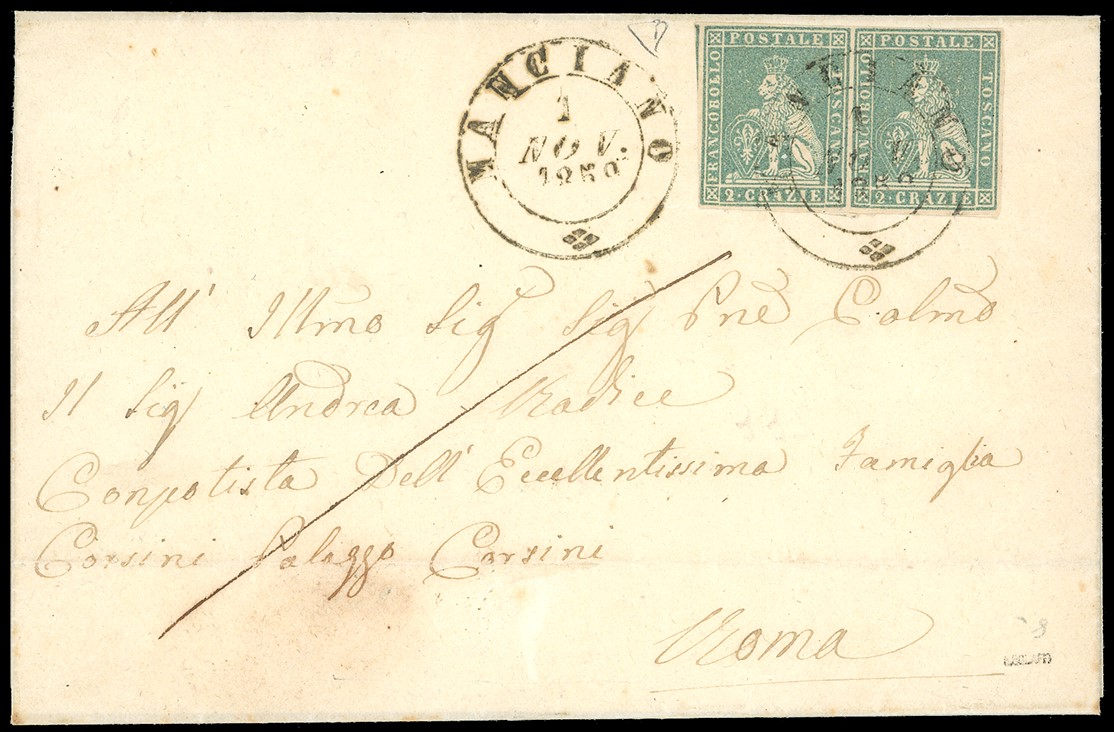 MANCIANO
1
NOV.
185
POSTALE
FRANCOBOLLO
TOSCANO
2·CRAZIE
POSTALE
TOSCANO
2·CRAZIE
All' Illmo Sig Sig Pne Colmo
Il Sig Andrea Radice
Conpotista Dell' Eccellentissima Famiglia
Corsini Palazzo Corsini
Roma